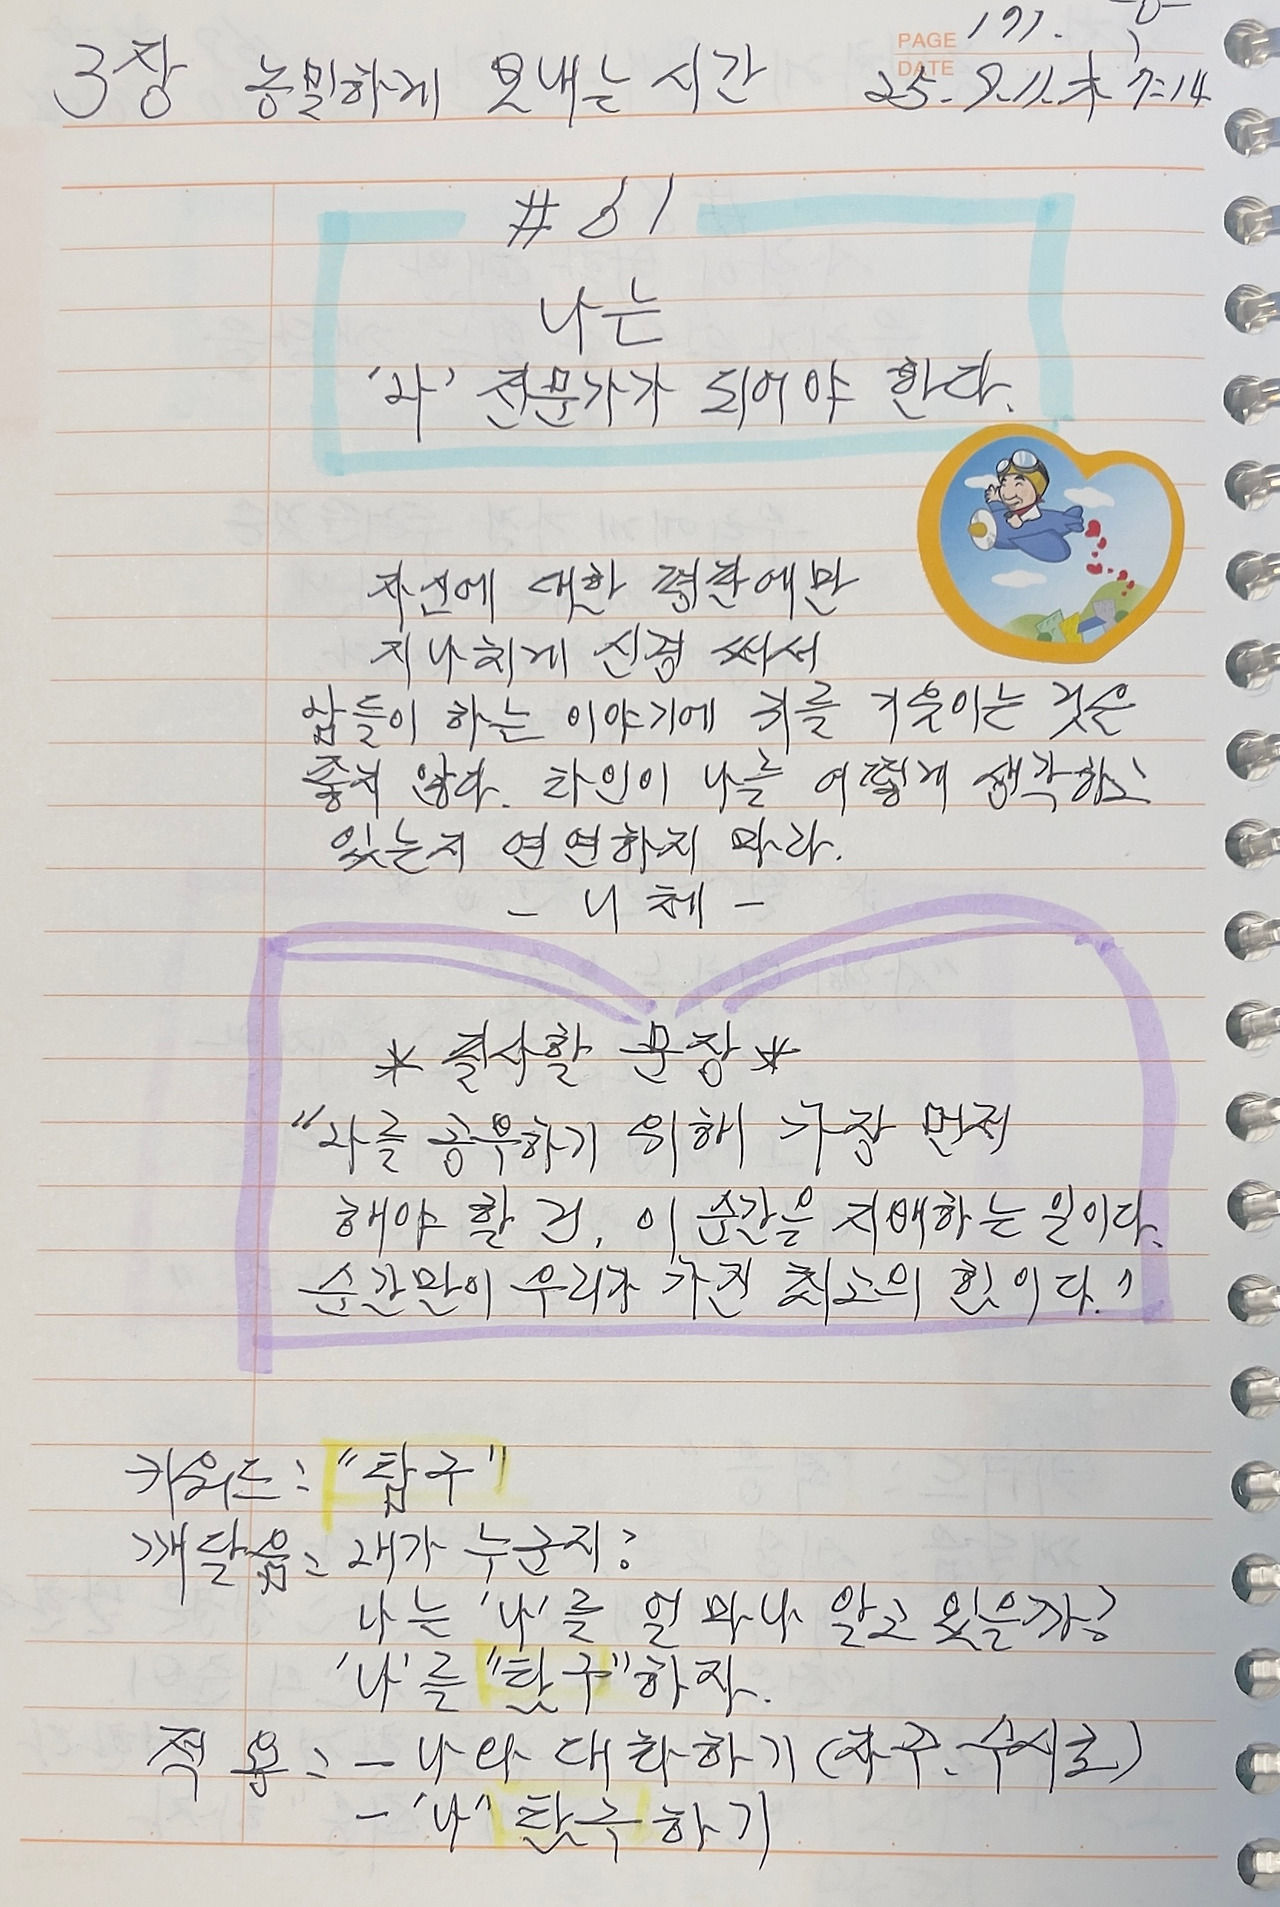 PAGE 197.
3장 농밀하게 보내는 시간
DATE 25. 9. 11. 木 7:14
# 61
나는
'나' 전문가가 되어야 한다.
자신에 대한 평판에만
지나치게 신경 써서
남들이 하는 이야기에 귀를 기울이는 것은
좋지 않다. 타인이 나를 어떻게 생각하고
있는지 연연하지 마라.
- 니체 -
* 필사할 문장 *
"나를 공부하기 위해 가장 먼저
해야 할 건, 이 순간을 지배하는 일이다.
순간만이 우리가 가진 최고의 힘이다."
키워드: "탐구"
깨달음: 내가 누군지?
나는 '나'를 얼마나 알고 있을까?
'나'를 "탐구"하자.
적용: - 나와 대화하기 (자꾸. 수시로)
- '나' 탐구하기